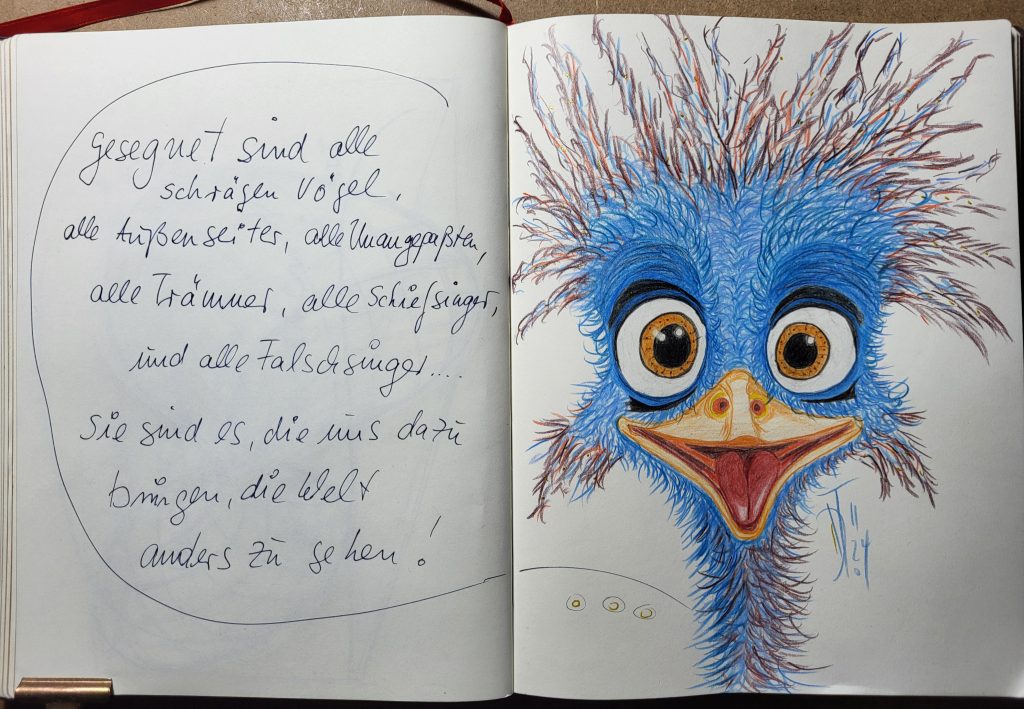 Gesegnet sind alle
schrägen Vögel,
alle Außenseiter, alle Unangepaßten,
alle Träumer, alle Schiefsinger,
und alle Falschsinger....
Sie sind es, die uns dazu
bringen, die Welt
anders zu sehen!
11
24